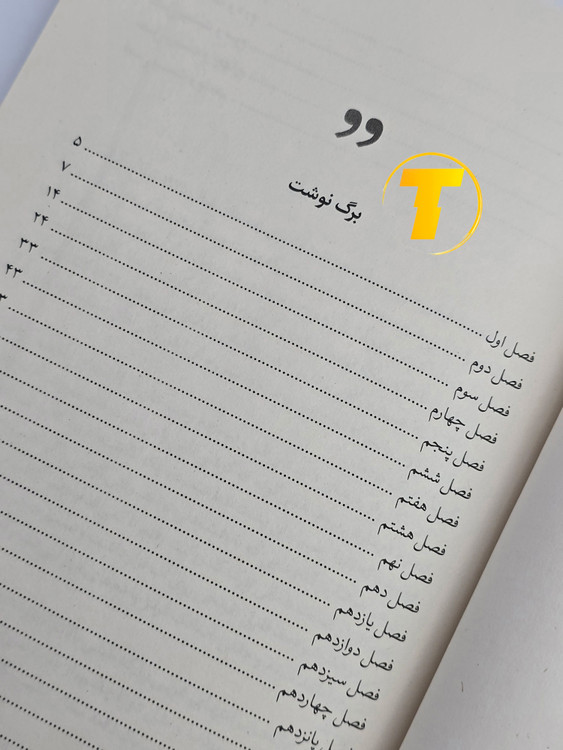 ”
T
برگ نوشت
فصل اول ........................................ ۵
فصل دوم ........................................ ۷
فصل سوم ........................................ ۱۴
فصل چهارم ........................................ ۲۴
فصل پنجم ........................................ ۳۳
فصل ششم ........................................ ۴۳
فصل هفتم ........................................
فصل هشتم ........................................
فصل نهم ........................................
فصل دهم ........................................
فصل یازدهم ........................................
فصل دوازدهم ........................................
فصل سیزدهم ........................................
فصل چهاردهم ........................................
فصل پانزدهم ........................................